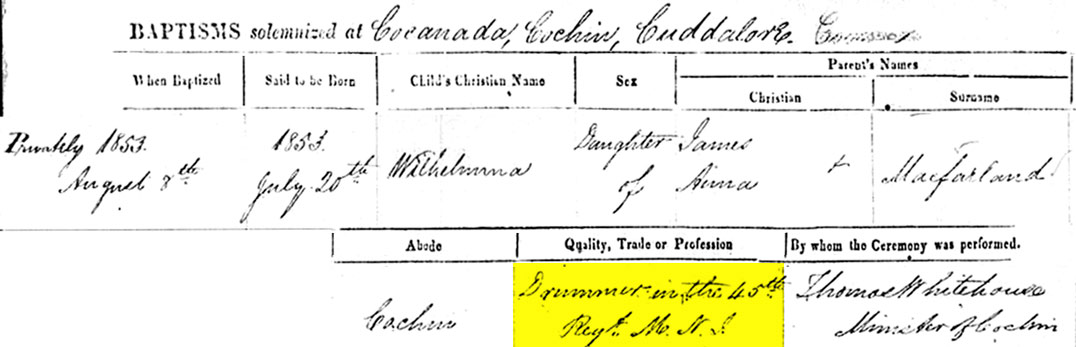 BAPTISMS solemnized at Cocanada, Cochin, Cuddalore.
When Baptized Said to be Born Child's Christian Name Sex Parent's Names
Christian Surname
Privately 1853. 1853. Daughter James
August 8th July 20th Wilhelmina of Anna + Macfarland
Abode Quality, Trade or Profession By whom the Ceremony was performed.
Drummer in the 45th Thomas Whitehouse
Cochin Regt. M. N. I. Minister of Cochin